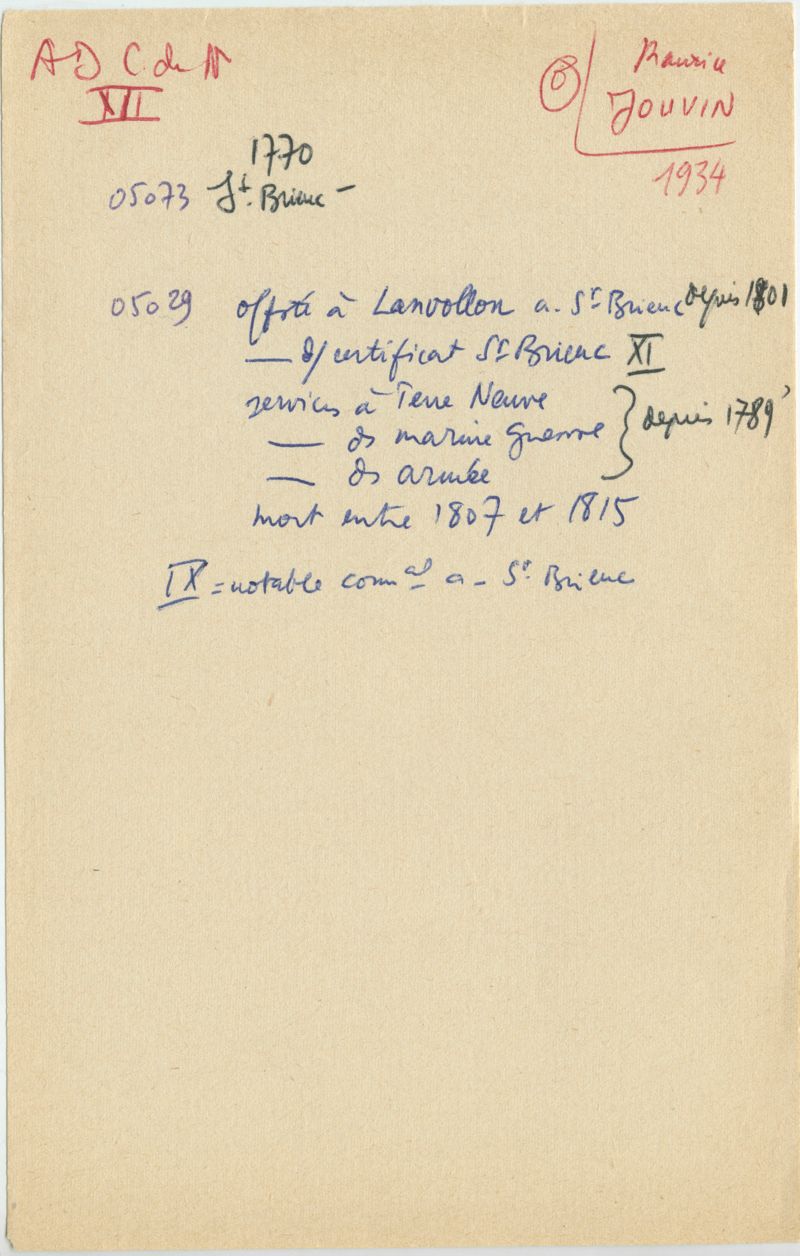 AD C. du N
XII
Maurice
JOUVIN
1934
1770
05073 St. Brieuc -
05029 offsté à Lanvollon a. St Brieuc depuis 1801
— d/certificat St Brieuc XI
services à Terre Neuve
— ds marine Guerre } depuis 1789
— ds armée
mort entre 1807 et 1815
IX = notable comal a - St. Brieuc